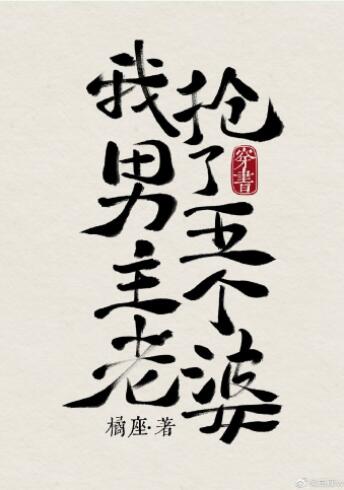 我抢了男主五个老婆
穿書
橘座·著